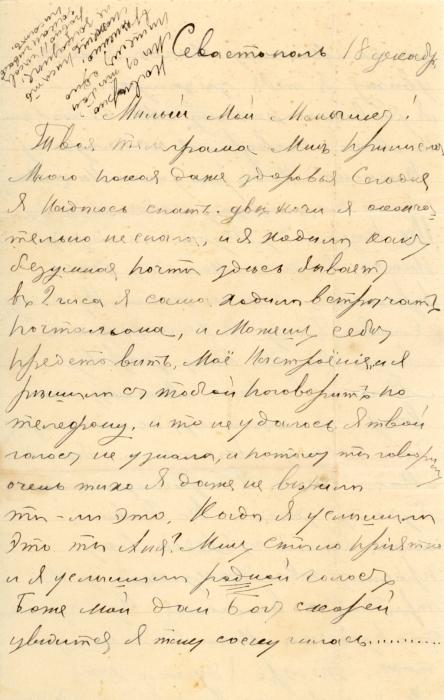 Севастополь 18 декабр
Милый Мой Мамычка!
Твоя телеграма Мнѣ принесла
Много покоя даже здоровья Сегодня
Я надеюсь спать. двѣ ночи я оконча-
тельно не спала, и я ходила какъ
безумная почта здѣсь бываетъ
въ 2 часа я сама ходила встрѣчать
почтальона, и Можешь себѣ
представить, Моё Настроёние, и я
рѣшила съ тобой поговорить по
телефону, и то не удалось Я твой
голосъ не узнала, и потому ты говоришь
очень тихо Я даже не вѣрила
ты-ли Это. Когда я услышала
Это ты Аня? Мнѣ стало приятно
и я услышала родной голосъ
Боже мой дай Богъ скорей
увидится Я такъ соскучилась..........